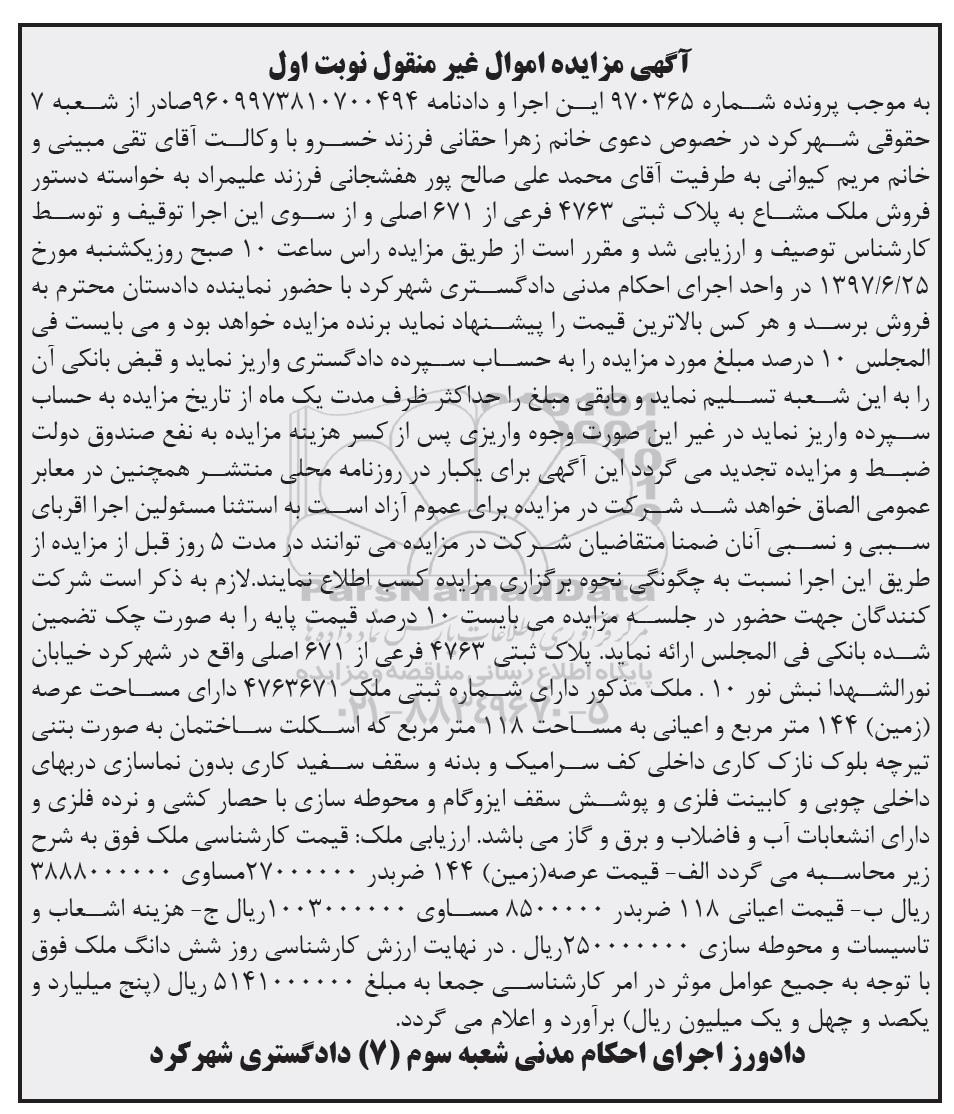 آگهی مزایده اموال غیر منقول نوبت اول
به موجب پرونده شماره ۹۷۰۳۶۵ این اجرا و دادنامه ۹۶۰۹۹۷۳۸۱۰۷۰۰۴۹۴صادر از شعبه ۷
حقوقی شهرکرد در خصوص دعوی خانم زهرا حقانی فرزند خسرو با وکالت آقای تقی مبینی و
خانم مریم کیوانی به طرفیت آقای محمد علی صالح پور هفشجانی فرزند علیمراد به خواسته دستور
فروش ملک مشاع به پلاک ثبتی ۴۷۶۳ فرعی از ۶۷۱ اصلی و از سوی این اجرا توقیف و توسط
کارشناس توصیف و ارزیابی شد و مقرر است از طریق مزایده راس ساعت ۱۰ صبح روزیکشنبه مورخ
۱۳۹۷/۶/۲۵ در واحد اجرای احکام مدنی دادگستری شهرکرد با حضور نماینده دادستان محترم به
فروش برسد و هر کس بالاترین قیمت را پیشنهاد نماید برنده مزایده خواهد بود و می بایست فی
المجلس ۱۰ درصد مبلغ مورد مزایده را به حساب سپرده دادگستری واریز نماید و قبض بانکی آن
را به این شعبه تسلیم نماید و مابقی مبلغ را حداکثر ظرف مدت یک ماه از تاریخ مزایده به حساب
سپرده واریز نماید در غیر این صورت وجوه واریزی پس از کسر هزینه مزایده به نفع صندوق دولت
ضبط و مزایده تجدید می گردد این آگهی برای یکبار در روزنامه محلی منتشر همچنین در معابر
عمومی الصاق خواهد شد شرکت در مزایده برای عموم آزاد است به استثنا مسئولین اجرا اقربای
سببی و نسبی آنان ضمنا متقاضیان شرکت در مزایده می توانند در مدت ۵ روز قبل از مزایده از
طریق این اجرا نسبت به چگونگی نحوه برگزاری مزایده کسب اطلاع نمایند.لازم به ذکر است شرکت
کنندگان جهت حضور در جلسه مزایده می بایست ۱۰ درصد قیمت پایه را به صورت چک تضمین
شده بانکی فی المجلس ارائه نماید. پلاک ثبتی ۴۷۶۳ فرعی از ۶۷۱ اصلی واقع در شهرکرد خیابان
نورالشهدا نبش نور ۱۰ . ملک مذکور دارای شماره ثبتی ملک ۴۷۶۳۶۷۱ دارای مساحت عرصه
(زمین) ۱۴۴ متر مربع و اعیانی به مساحت ۱۱۸ متر مربع که اسکلت ساختمان به صورت بتنی
تیرچه بلوک نازک کاری داخلی کف سرامیک و بدنه و سقف سفید کاری بدون نماسازی دربهای
داخلی چوبی و کابینت فلزی و پوشش سقف ایزوگام و محوطه سازی با حصار کشی و نرده فلزی و
دارای انشعابات آب و فاضلاب و برق و گاز می باشد. ارزیابی ملک: قیمت کارشناسی ملک فوق به شرح
زیر محاسبه می گردد الف- قیمت عرصه(زمین) ۱۴۴ ضربدر ۲۷۰۰۰۰۰۰مساوی ۳۸۸۸۰۰۰۰۰۰
ریال ب- قیمت اعیانی ۱۱۸ ضربدر ۸۵۰۰۰۰۰ مساوی ۱۰۰۳۰۰۰۰۰۰ریال ج- هزینه اشعاب و
تاسیسات و محوطه سازی ۲۵۰۰۰۰۰۰۰ریال . در نهایت ارزش کارشناسی روز شش دانگ ملک فوق
با توجه به جمیع عوامل موثر در امر کارشناسی جمعا به مبلغ ۵۱۴۱۰۰۰۰۰۰ ریال (پنج میلیارد و
یکصد و چهل و یک میلیون ریال) برآورد و اعلام می گردد.
دادورز اجرای احکام مدنی شعبه سوم (۷) دادگستری شهرکرد
ParsNamadData
پایگاه اطلاع رسانی مناقصه و مزایده
۰۲۱-۸۸۳۴۹۶۷۰-۵